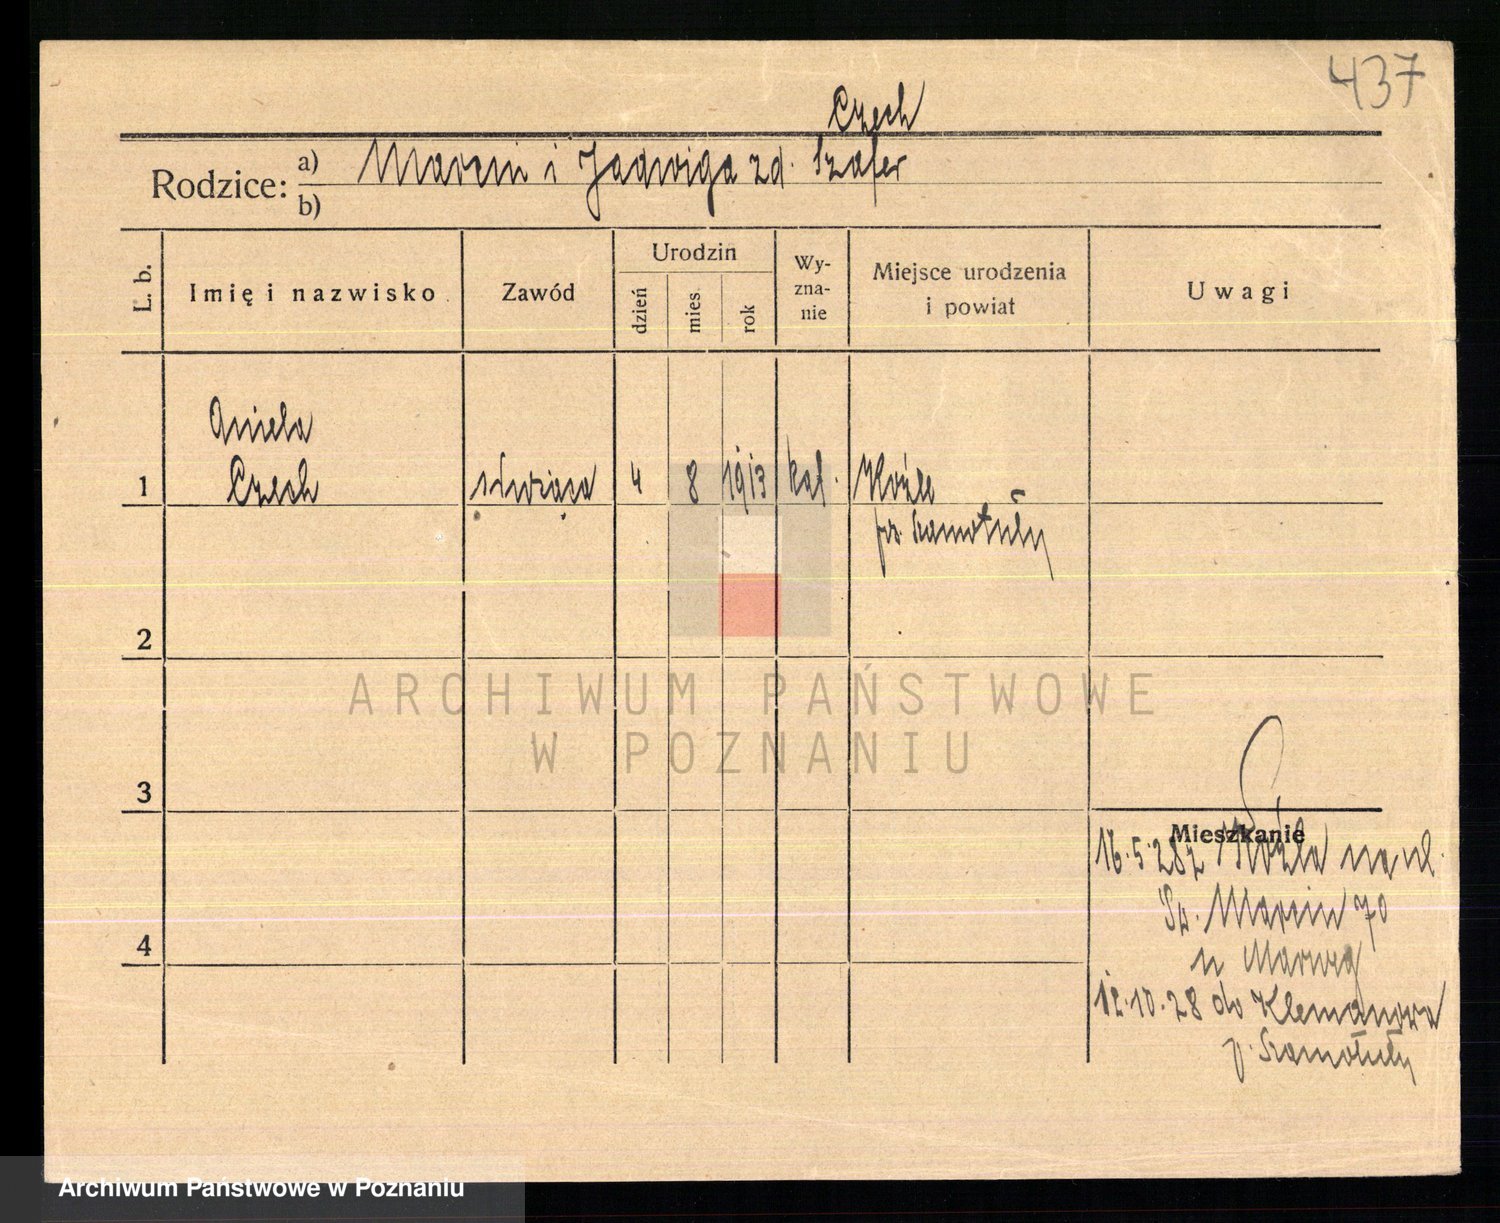 437
Czech
Rodzice: a) Marcin i Jadwiga zd. Szafer
b)
L. b. Imię i nazwisko Zawód Urodzin dzień mies. rok Wy-zna-nie Miejsce urodzenia i powiat Uwagi
Aniela
1 Czech służąca 4 8 1913 kat. Koźle
pow. Szamotuły
2
ARCHIWUM PAŃSTWOWE
W POZNANIU
3
Mieszkanie
16.5.28 z Koźla na ul.
Św. Marcin 70
4
u
12.10.28 do
p. Szamotuły
Archiwum Państwowe w Poznaniu